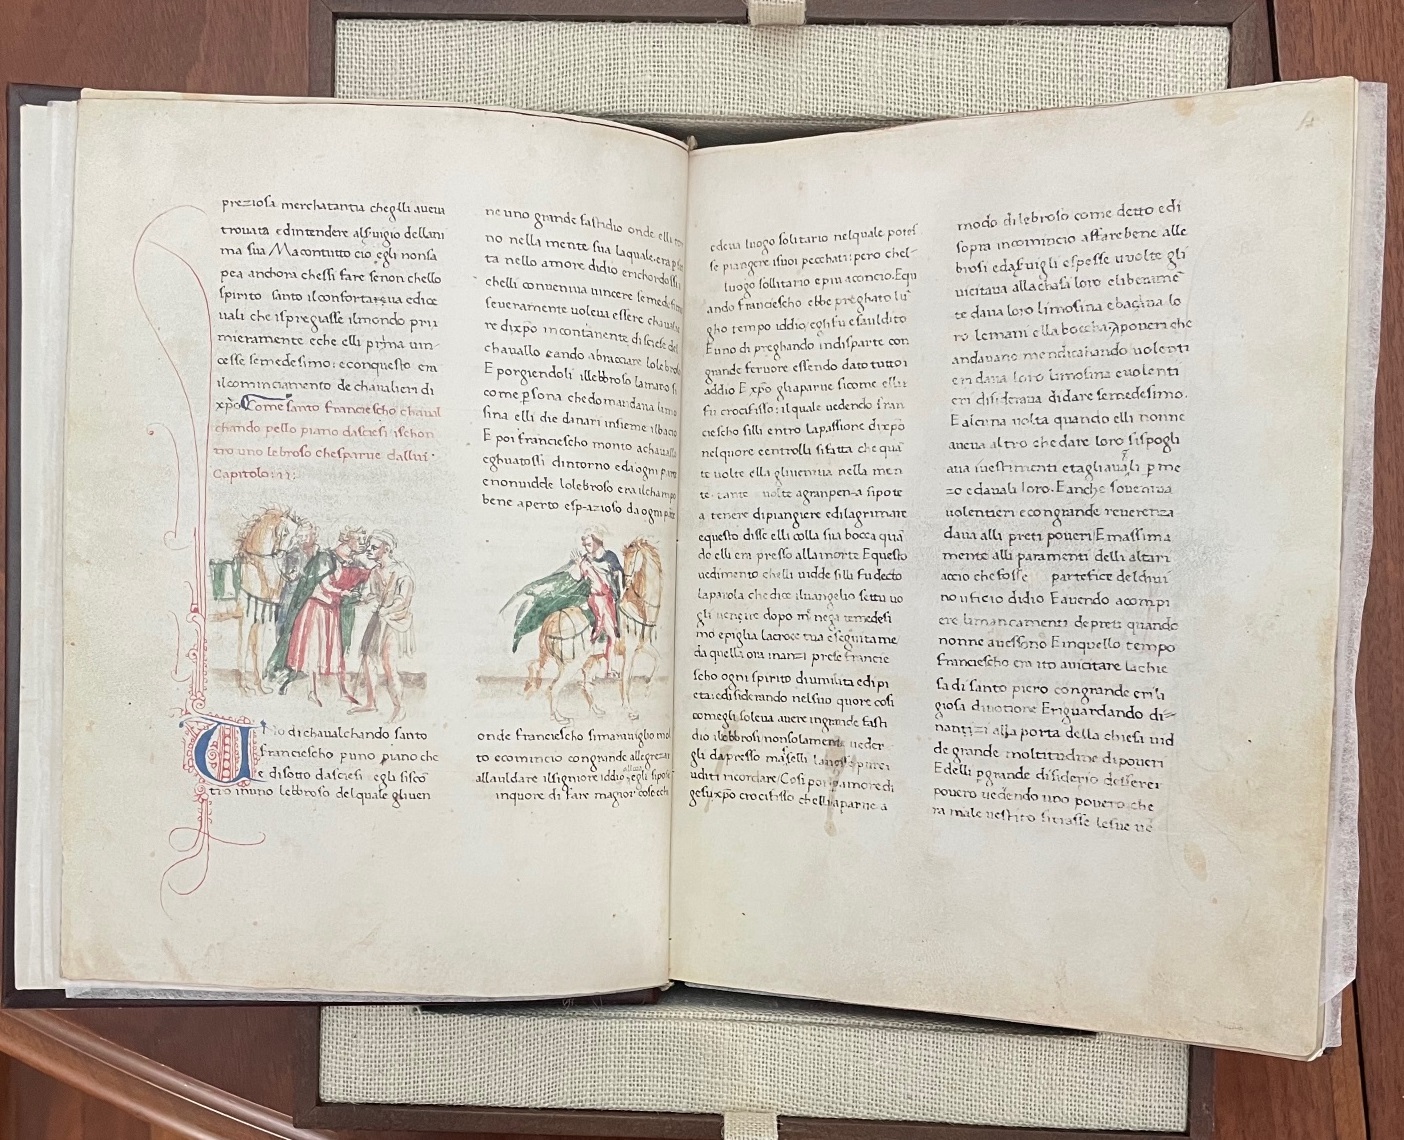 preziosa merchatantia chegli aueua
trouata edintendere alseruigio dellani
ma sua Macontutto cio egli nonsa
pea anchora chessi fare senon chello
spirito santo ilconfortaua edice
uali che ispregiasse ilmondo pri
mieramente eche elli prima uin
cesse semedesimo: econquesto era
ilcominciamento de chaualieri di
xpo Come santo franciescho chaual
chando pello piano dascesi ischon
tro uno lebroso chesparue dallui·
Capitolo:ii:
Uno di chaualchando santo
franciescho puno piano che
e disotto dascesi egli sisco
tro inuno lebroso delquale gliuen
ne uno grande fastidio onde elli
no nella mente sua laquale era
ta nello amore didio erichordossi
chelli conueniua uincere semedesimo
seueramente uoleua essere chaualie
re dixpo incontanente disciese del
chauallo eando abracciare lolebroso
E porgiendoli illebroso lamano si
come psona chedomandaua limo
sina elli die danari insieme ilbacio
E poi franciescho monto achauallo
eghuatossi dintorno edi ogni parte
enonuidde lolebroso era ilchampo
bene aperto espazioso da ogni parte
onde franciescho simarauiglio mol
to ecomincio congrande allegrezza
allauldare ilsigniore iddio, egli sipose
inquore di fare magior cose ech
edeua luogo solitario nelquale potes
se piangere isuoi pecchati: pero chel
luogo sollitario epiu aconcio. Equ
ando franciescho ebbe preghato lu
gho tempo iddio cosi fu esaulditо
E uno di preghando indisparte con
grande feruore essendo dato tutto i
addio E xpo gliaparue sicome elli
fu crocifisso: ilquale uedendo fran
ciescho silli entro lapassione dixpo
nelquore eentrolli sifatta che qua
te uolte ella gliueniua nella men
te tante uolte agranpena sipote
a tenere dipiangiere edilagrimare
equesto disse elli colla sua bocca qua
do elli era presso allamorte Equesto
uedimento chelli uidde silli fudecto
laparola che dice iluangelio settu uo
gli uenire dopo me nega temedesi
mo epiglia lacroce tua eseguitame
da quella ora inanzi prese francie
scho ogni spirito diumilita edi pi
eta: edisiderando nelsuo quore cosi
comegli soleua auere ingrande fasti
dio ilebbrosi nonsolamente ueder
gli dapresso
uditi ricordare Cosi per amore di
gesuxpo crocifisso chelli aparue a
modo dilebroso come detto edi
sopra incomincio affare bene alle
brosi edaseruigli espesse uolte gli
uicitaua allachasa loro eliberame
te daua loro limosina ebaciaua lo
ro lemani ella boccha, apoueri che
andauano mendichando uolenti
eri daua loro limosina euolenti
eri disideraua didare semedesimo.
E alcuna uolta quando elli nonne
aueua altro chedare loro sispogli
aua iuestimenti etagliauali p me
zo edauali loro. E anche soueniua
uolentieri econgrande reuerenza
daua alli preti poueri E massima
mente alli paramenti delli altari
accio chefosse partefice deldiui
no uficio didio Eauendo acompi
ere limancamenti depreti quando
nonne auessono Einquello tempo
franciescho era ito auicitare lachie
sa di santo piero congrande
giosa diuotione Eriguardando di
nanzi alla porta della chiesa uid
de grande moltitudine dipoueri
Edelli pgrande disiderio dessere
pouero uedendo uno pouero che
ra male uestito sitrasse lesue ue